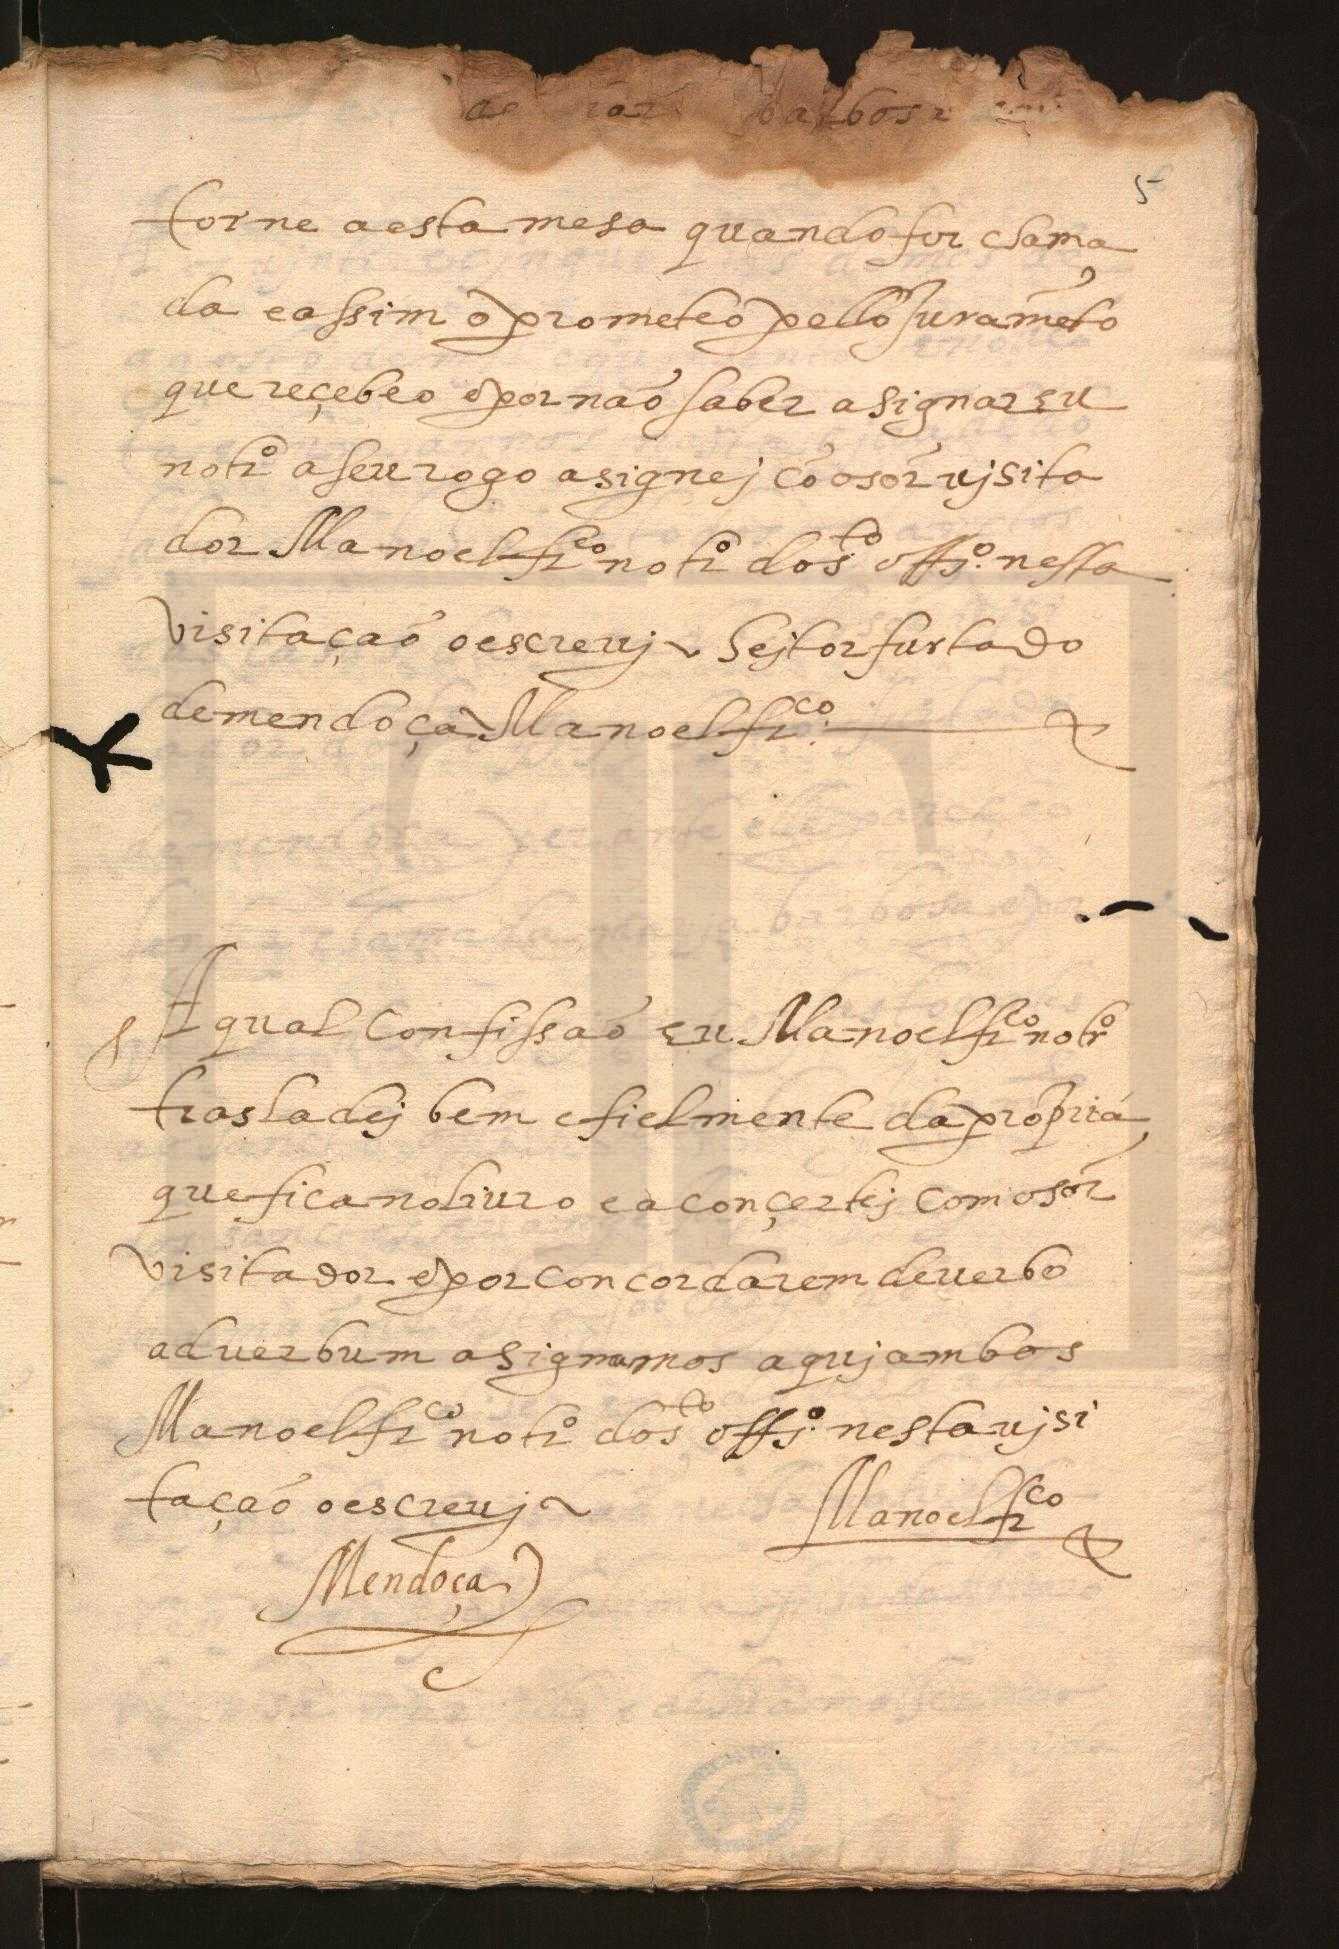 de barbosa
5
torne a esta mesa quando for chama
da e assim o prometeo pello Juramẽto
que reçebeo & por não saber asignar eu
notr.º a seu rogo asignej cõ o sõr vjsita
dor Manoel fr.co notr.º do s.to offj.º nesta
visitação o escrevj Hejtor furtado
de mendoça Manoel fr.co
A qual Confissão eu Manoel fr.co notr.º
trasladej bem e fielmente da propria
que fica no livro e a conçertej com o sõr
visitador & por concordarem de verbo
ad verbum asignamos aquj ambos
Manoel fr.co notr.º do s.to offj.º nesta vjsi
tação o escrevj
Manoel fr.co
Mendoça